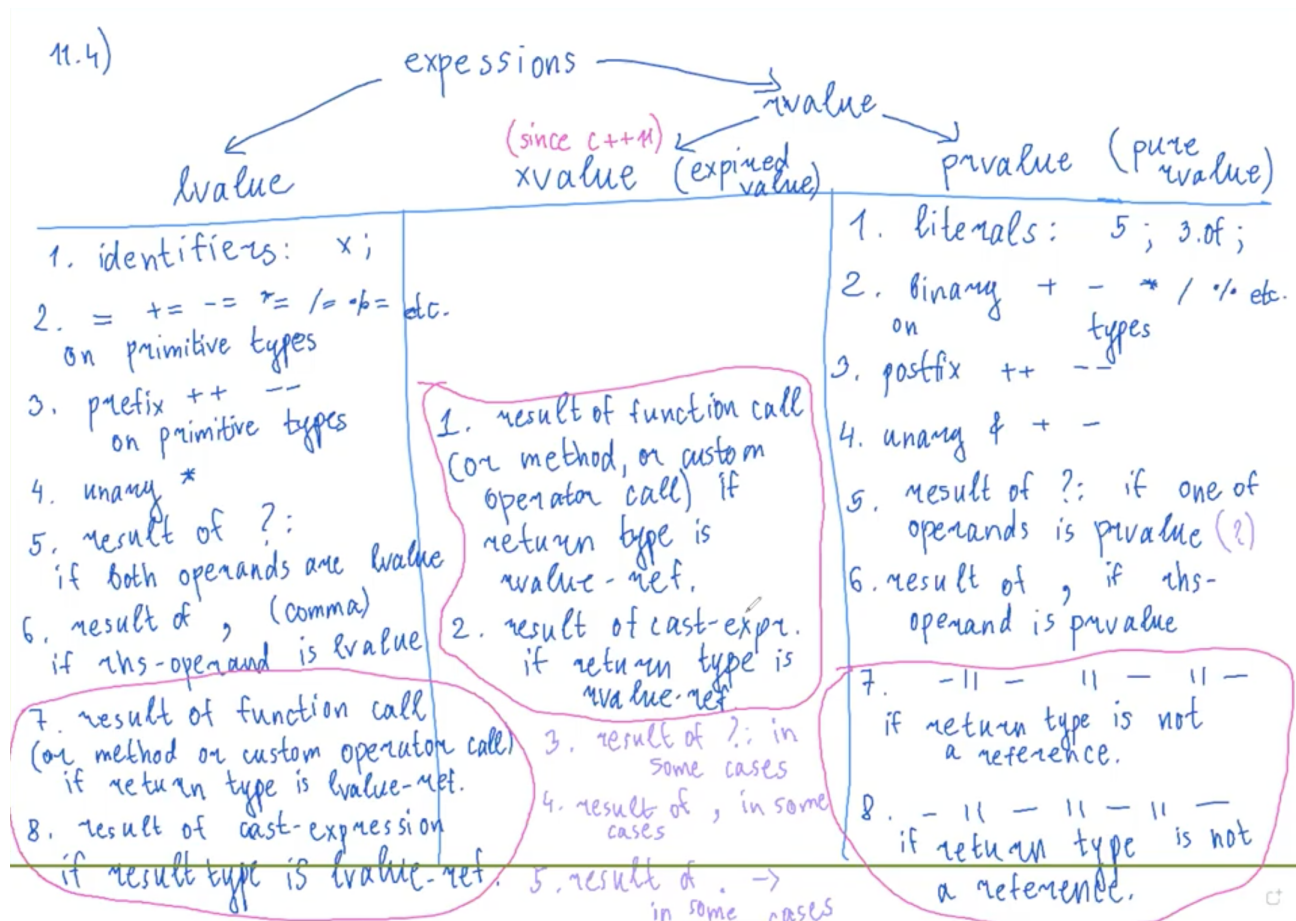 11.4)
expessions
rvalue
(since c++11)
lvalue
xvalue (expired value)
prvalue (pure rvalue)
1. identifiers: x;
2. = += -= *= /= %= etc.
on primitive types
3. prefix ++ --
on primitive types
4. unary *
5. result of ?:
if both operands are lvalue
6. result of , (comma)
if rhs-operand is lvalue
7. result of function call
(or method or custom operator call)
if return type is lvalue-ref.
8. result of cast-expression
if result type is lvalue-ref.
1. result of function call
(or method, or custom
operator call) if
return type is
rvalue-ref.
2. result of cast-expr.
if return type is
rvalue-ref
3. result of ?: in
some cases
4. result of , in some
cases
5. result of . ->
in some cases
1. literals: 5; 3.0f;
2. binary + - * / % etc.
on types
3. postfix ++ --
4. unary & + -
5. result of ?: if one of
operands is prvalue (?)
6. result of , if rhs-
operand is prvalue
7. -||- || - || -
if return type is not
a reference.
8. - || - || - || -
if return type is not
a reference.